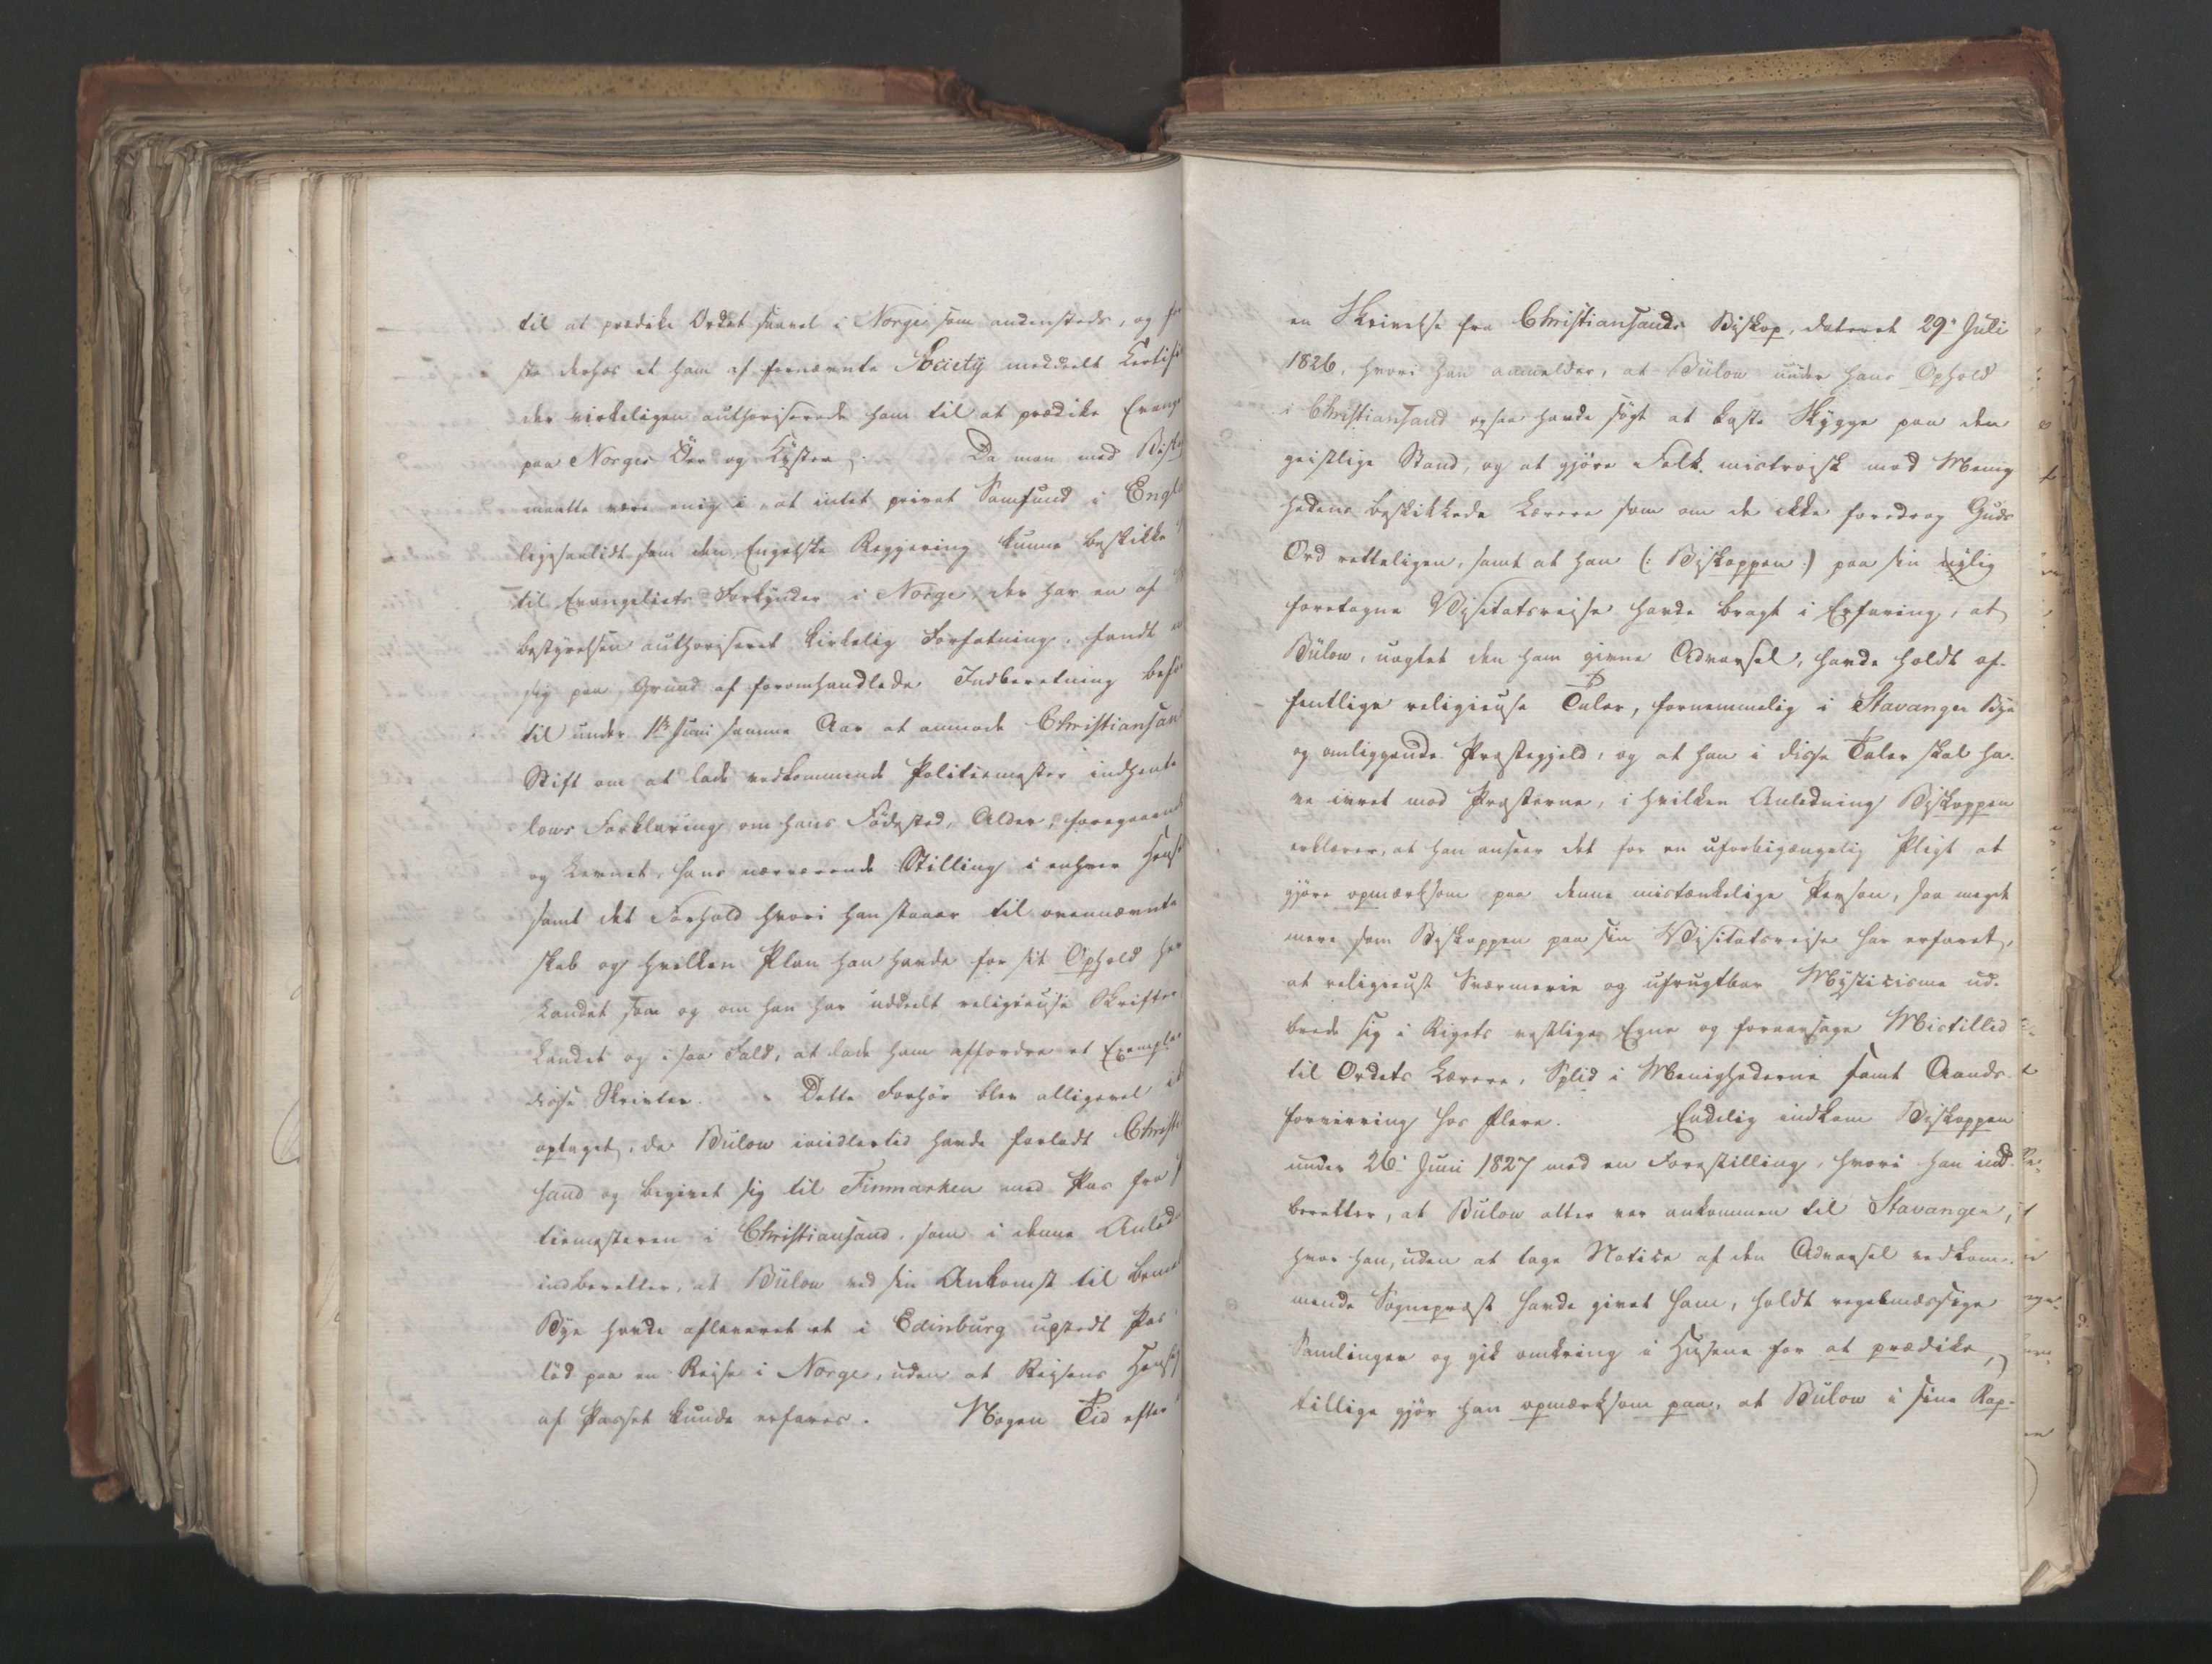 til at prædike Ordet saavel i Norge som andensteds, og
ste derhos et ham af fornævnte Society meddeelt Certifi
der virkeligen authoriserede ham til at prædike Evang
paa Norges Öer og Kyster. Da man med Bisk
maatte være enig i, at intet privat Samfund i Engla
ligesaalidt som den Engelske Regjering kunne beskikke
til Evangeliets Forkynder i Norge, der har en af
bestyrelsen authoriseret kirkelig Forfatning, fandt
sig paa Grund af foromhandlede Indberetning befö
til under 1ste Juni samme Aar at anmode Christiansan
Stift om at lade vedkommende Politiemester indhente
lows Forklaring om hans Födested, Alder, foregaaend
og Levnet, hans nærværende Stilling i enhver Hens
samt det Forhold hvori han staaer til ovennævnte
skab og hvilken Plan han havde for sit Ophold her
Landet som og om han har uddeelt religieuse Skrifter
Landet og i saa Fald, at lade ham affordre et Exempla
disse Skrivter. Dette Forhör blev alligevel ik
optaget, da Bülow imidlertid havde forladt Christi
sand og begivet sig til Finmarken med Pas fra
tiemesteren i Christiansand, som i denne Anled
indberetter, at Bülow ved sin Ankomst til bem
Bye havde afleveret et i Edinburg udstedt Pas
löd paa en Reise i Norge, uden at Reisens Hens
af Passet kunde erfares. Nogen Tid efter
en Skrivelse fra Christiansands Biskop, dateret 29de Juli
1826, hvori han anmelder, at Bülow under hans Ophold
i Christiansand ogsaa havde sögt at kaste Skygge paa den
geistlige Stand, og at gjöre Folk mistroisk mod Menig
hedens beskikkede Lærere som om de ikke foredrog Guds
Ord retteligen, samt at han (: Biskoppen :) paa sin nylig
foretagne Visitatsreise havde bragt i Erfaring, at
Bülow, uagtet den ham givne Advarsel, havde holdt of-
fentlige religieuse Taler, fornemmelig i Stavanger Bye
og omliggende Præstegjeld, og at han i disse Taler skal ha-
ve ivret mod Præsterne, i hvilken Anledning Biskoppen
erklærer, at han anseer det for en uforbigængelig Pligt at
gjöre opmærksom paa denne mistænkelige Person, saa meget
mere som Biskoppen paa sin Visitatsreise har erfaret,
at religieust Sværmerie og ufrugtbar Mysticisme ud-
brede sig i Rigets vestlige Egne og foraarsage Mistillid
til Ordets Lærere, Splid i Menighederne samt Aands-
forvirring hos flere. Endelig indkom Biskoppen
under 26de Juni 1827 med en Forestilling, hvori han ind-
beretter, at Bülow atter var ankommen til Stavanger,
hvor han, uden at tage Notice af den Advarsel vedkom-
mende Sognepræst havde givet ham, holdt regelmæssige
Samlinger og gik omkring i Husene for at prædike,
tillige gjör han opmærksom paa, at Bülow i sine Rap-